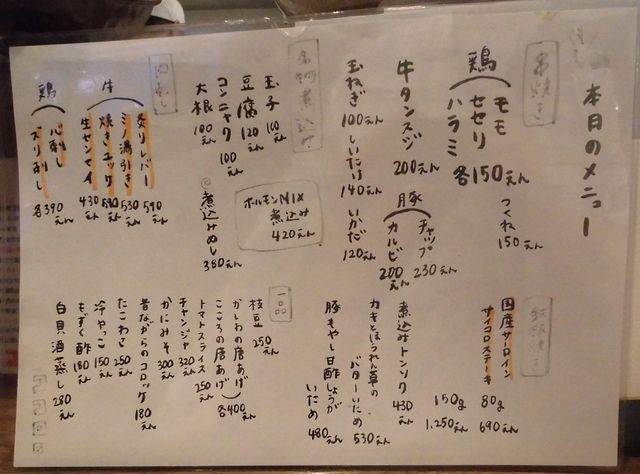 本日のメニュー
串焼き
鶏
モモ
セセリ
ハラミ
各150えん
つくね
150えん
牛タンスジ
200えん
豚
チャップ
230えん
カルビ
200えん
玉ねぎ
100えん
しいたけ
140えん
いかだ
120えん
名物煮込み
玉子
100えん
豆腐
120えん
コンニャク
100えん
大根
100えん
ホルモンMIX
煮込み
420えん
◎煮込みめし
380えん
肉刺し
牛
炙りレバー
590えん
ミノ湯引き
530えん
焼きユッケ
生センマイ
430えん
鶏
心刺し
ズリ刺し
各390えん
鉄板焼き
国産サーロイン
サイコロステーキ
80g
690えん
150g
1.250えん
煮込みトンソク
430えん
カキとほうれん草の
バターいため
530えん
豚もやし甘酢しょうが
いため
480えん
一品
枝豆
250えん
かしわの唐あげ
こころの唐あげ
各400えん
トマトスライス
250えん
チャンジャ
320えん
かにみそ
300えん
昔ながらのコロッケ
180えん
たこわさ
250えん
冷やっこ
150えん
もずく酢
180えん
白貝酒蒸し
280えん